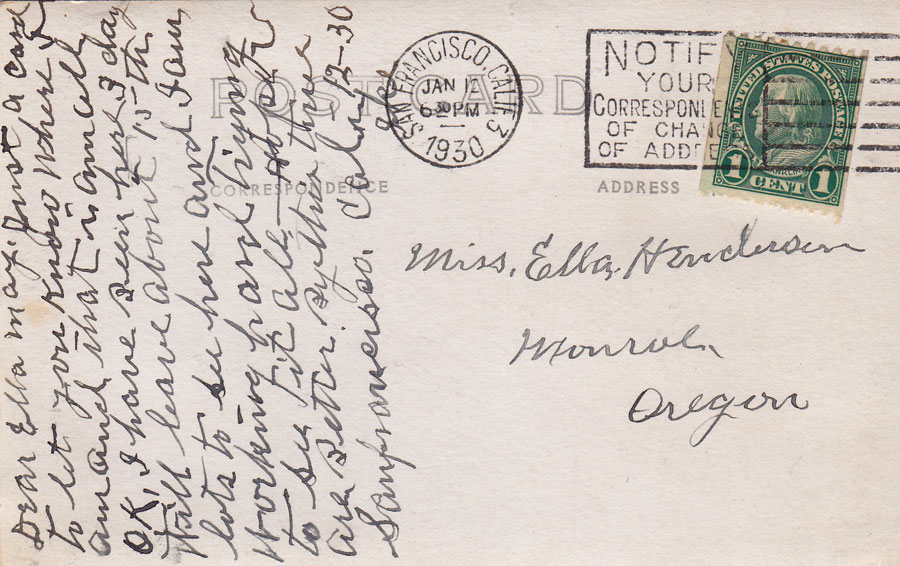 POST CARD
CORRESPONDENCE
ADDRESS
SAN FRANCISCO, CALIF. 3
JAN 12
6 30 PM
1930
NOTIFY
YOUR
CORRESPONDE
OF CHANGE
OF ADDRE
UNITED STATES POSTAGE
FRANKLIN
1 CENT 1
Dear Ella may. Just a card
to let you know where I
am and that is
OK, I have been here 1 day
Will leave about 15-th
lots to see here and I am
working hard trying
to see it all. Hope
are better.
Sanfrancisco. Cal. 1/12-30
Miss, Ella, Henderson
Monroe,
Oregon